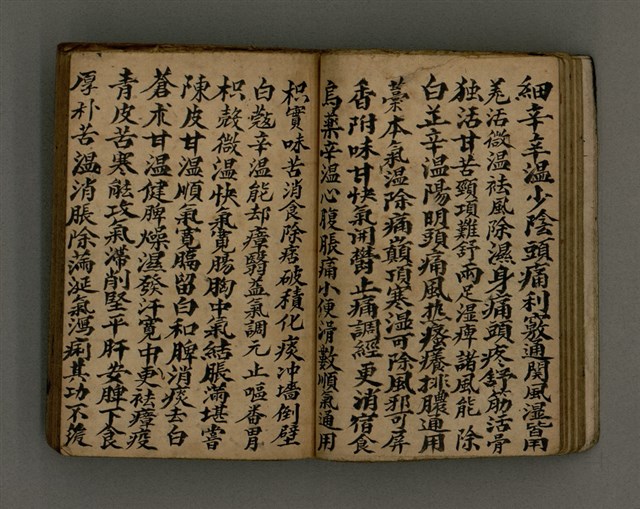 細辛辛溫少陰頭痛利竅通関風湿皆用
羌活微溫祛風除濕身痛頭疼舒筋活骨
独活甘苦頸項難舒兩足湿痺諸風能除
白芷辛溫陽明頭痛風熱瘙癢排膿通用
藁本氣溫除痛巔頂寒湿可除風邪可屏
香附味甘快氣開欝止痛調經更消宿食
烏藥辛溫心腹脹痛小便滑數順氣通用
枳實味苦消食除痞破積化痰冲墻倒壁
白蔻辛溫能却瘴翳益氣調元止嘔番胃
枳殼微溫快氣寬腸胸中氣結脹滿堪嘗
陳皮甘溫順氣寬膈留白和脾消痰去白
蒼朮甘溫健脾燥濕發汗寬中更祛瘴疫
青皮苦寒能攻氣滯削堅平肝安脾下食
厚朴苦溫消脹除滿涎氣瀉痢其功不緩